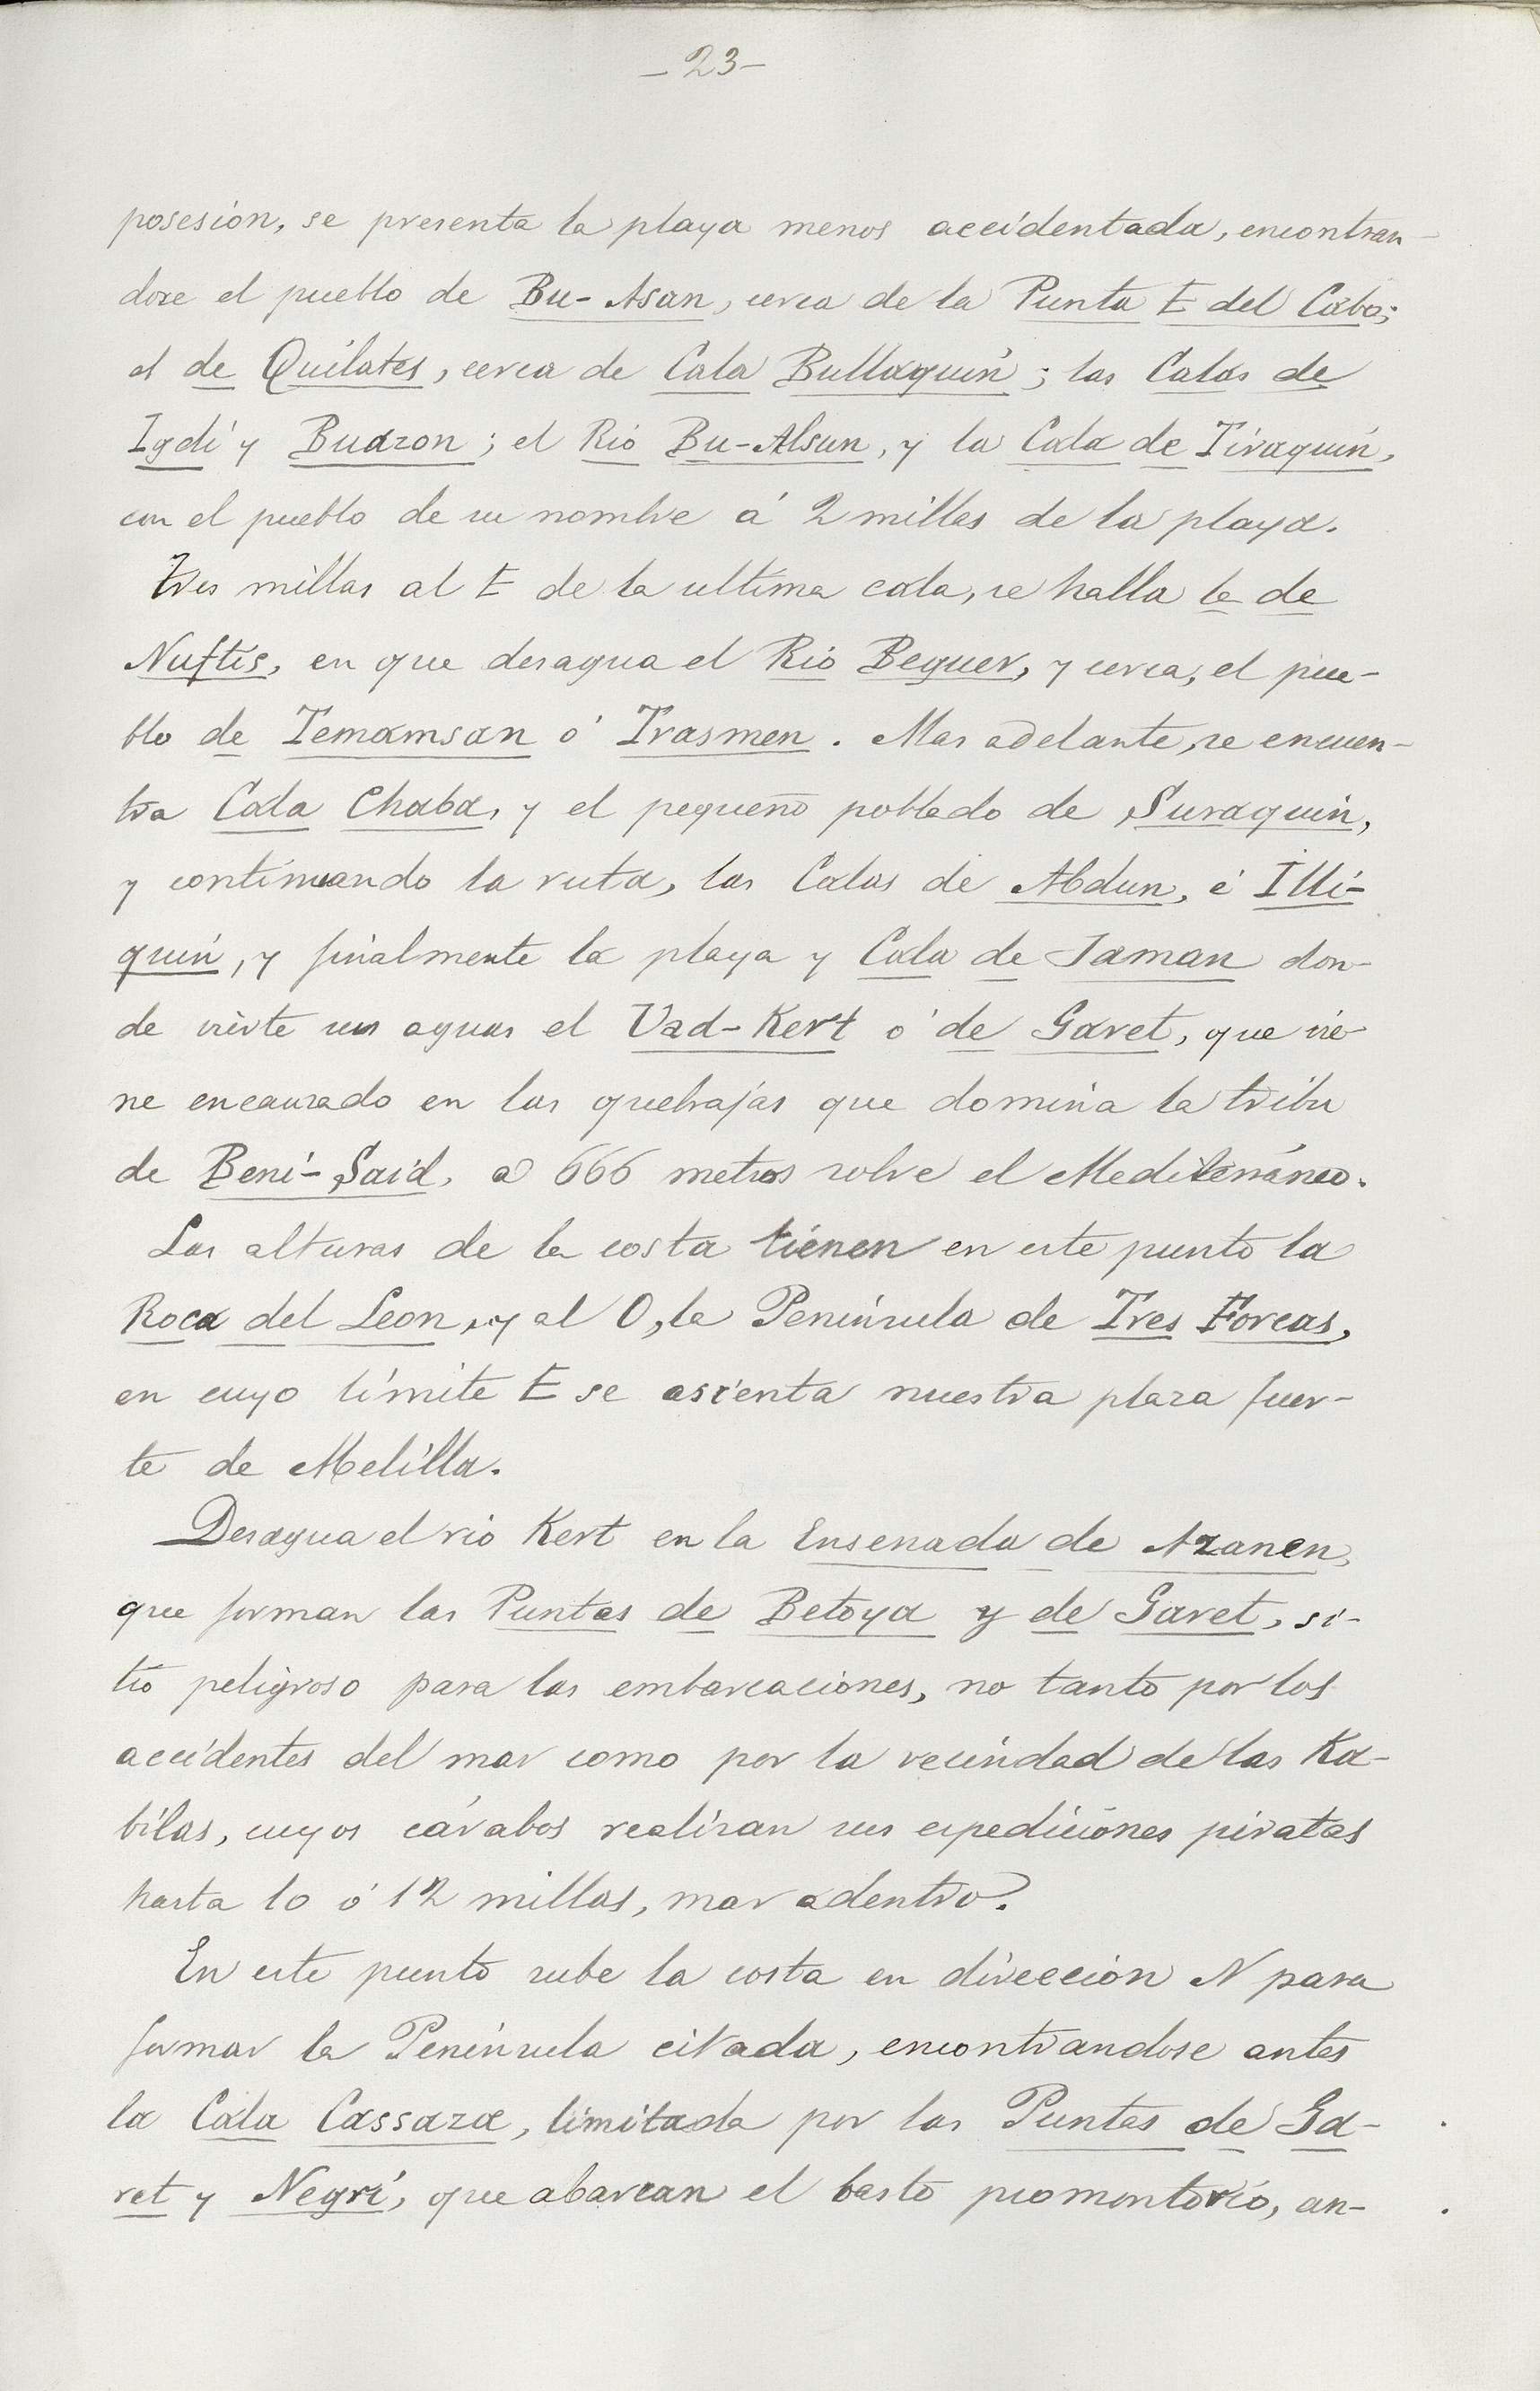 -23-
posesión, se presenta la playa menos accidentada, encontran-
dose el pueblo de Bu-Asan, cerca de la Punta E del Cabo;
el de Quilates, cerca de Cala Bullaquin; las Calas de
Igdi y Buazon; el Rio Bu-Alsun, y la Cala de Tiraquin,
con el pueblo de su nombre á 2 millas de la playa.
Tres millas al E de la ultima cala, se halla la de
Nuftis, en que desagua el Rio Beguer, y cerca, el pue-
blo de Temamsan ó Trasmen. Mas adelante, se encuen-
tra Cala Chaba, y el pequeño poblado de Suraquin,
y continuando la ruta, las Calas de Abdun, é Illi-
quin, y finalmente la playa y Cala de Jaman don-
de vierte sus aguas el Vad-Kert ó de Garet, que vie-
ne encauzado en las quebrajas que domina la tribu
de Beni-Said, a 666 metros sobre el Mediterráneo.
Las alturas de la costa tienen en este punto la
Roca del Leon, y al O, la Peninsula de Tres Forcas,
en cuyo límite E se asienta nuestra plaza fuer-
te de Melilla.
Desagua el rio Kert en la Ensenada de Azanen,
que forman las Puntas de Betoya y de Garet, si-
tio peligroso para las embarcaciones, no tanto por los
accidentes del mar como por la vecindad de las Ka-
bilas, cuyos cárabos realizan sus espediciónes piratas
hasta 10 ó 12 millas, mar adentro.
En este punto sube la costa en dirección N para
formar la Peninsula citada, encontrandose antes
la Cala Cassaza, limitada por las Puntas de Ga-
ret y Negrí, que abarcan el basto promontorio, an-